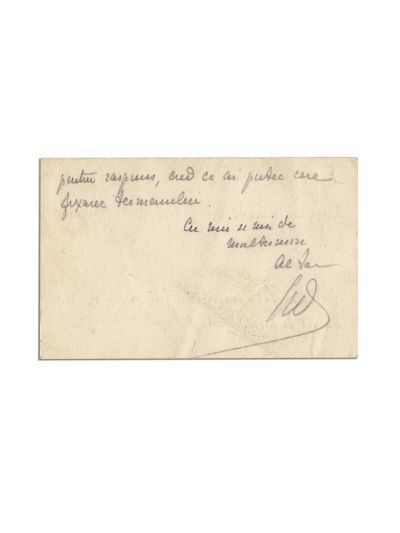 pentru raspuns, cred ca ai putea cere
fixarea termenului.
Cu mii si mii de
multumiri
al tau